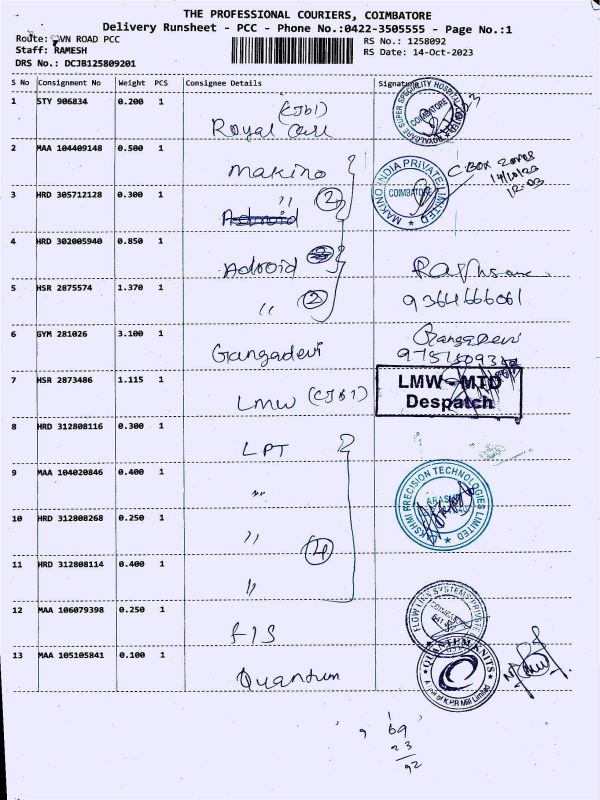 THE PROFESSIONAL COURIERS, COIMBATORE
Delivery Runsheet - PCC - Phone No.:0422-3505555 - Page No.:1
Route: VN ROAD PCC
RS No.: 1258092
Staff: RAMESH
RS Date: 14-Oct-2023
DRS No.: DCJB125809201
S No Consignment No Weight PCS Consignee Details Signature
1 STY 906834 0.200 1 (CJB1)
Royal Care
2 MAA 104409148 0.500 1 Makino
MAKINO INDIA PRIVATE LIMITED
COIMBATORE
3 HRD 305712128 0.300 1 〃 2
Adroid
4 HRD 302005940 0.850 1 Adroid
5 HSR 2875574 1.370 1 〃 2
9364666061
6 GYM 281026 3.100 1 Gangadevi
Gangadevi
7 HSR 2873486 1.115 1 LMW (CJB1)
LMW - MTD
Despatch
8 HRD 312808116 0.300 1 LPT
9 MAA 104020846 0.400 1 〃
10 HRD 312808268 0.250 1 〃
4
11 HRD 312808114 0.400 1 〃
12 MAA 106079398 0.250 1 FIS
13 MAA 105105841 0.100 1 Quantum
QUANTUM KNITS
A unit of K.P.R Mill Limited
69
23
92